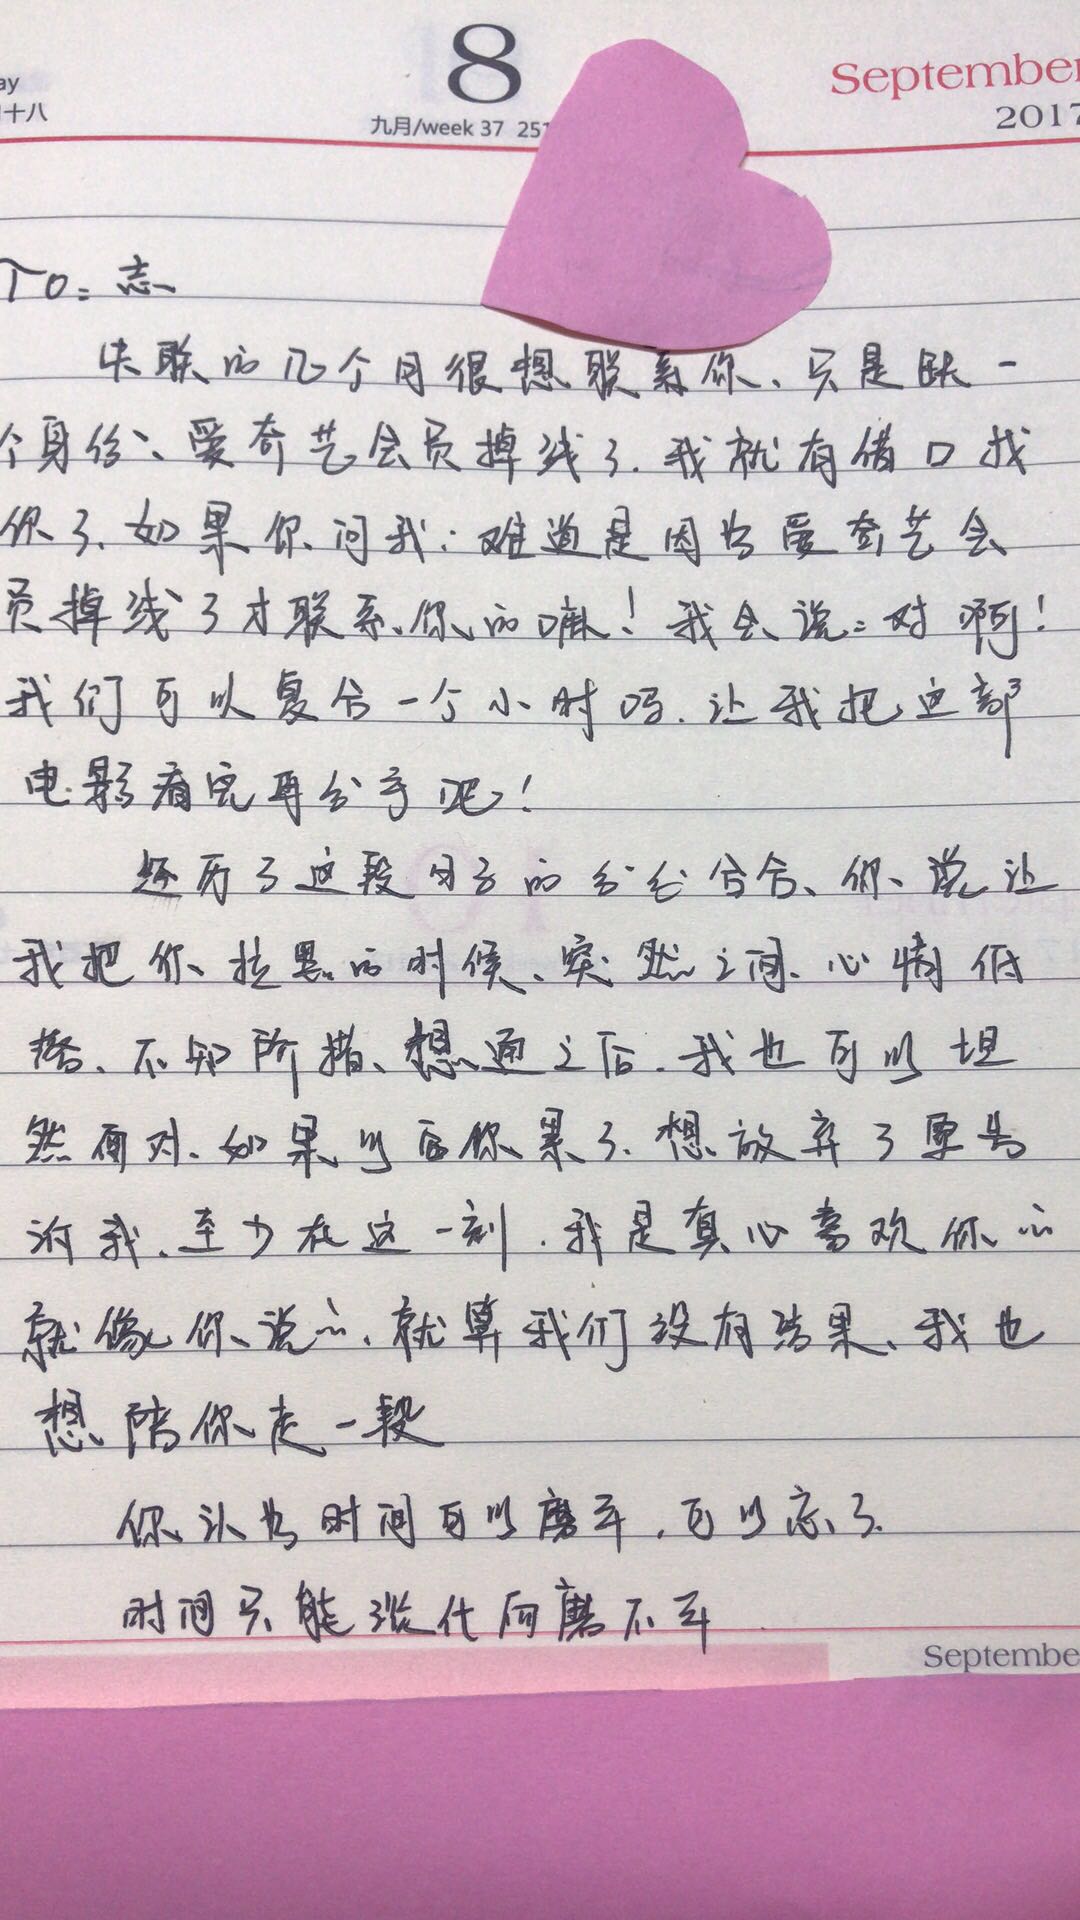 ay
8
September
十八
九月/week 37 251
2017
To: 志
失联的几个月很想联系你、只是缺一
个身份、爱奇艺会员掉线了.我就有借口找
你了、如果你问我:难道是因为爱奇艺会
员掉线了才联系你的嘛!我会说:对啊!
我们可以复合一个小时吗.让我把这部
电影看完再分手吧!
经历了这段日子的分分合合、你说让
我把你拉黑的时候、突然之间、心情低
落、不知所措、想通之后.我也可以坦
然面对、如果以后你累了.想放弃了要告
诉我、至少在这一刻.我是真心喜欢你的
就像你说的、就算我们没有结果、我也
想陪你走一段
你认为时间可以磨平.可以忘了.
时间只能淡化何磨不平
September